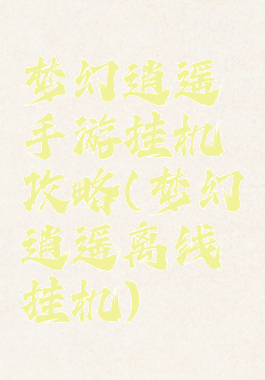 梦幻逍遥
手游挂机
攻略(梦幻
逍遥离线
挂机)